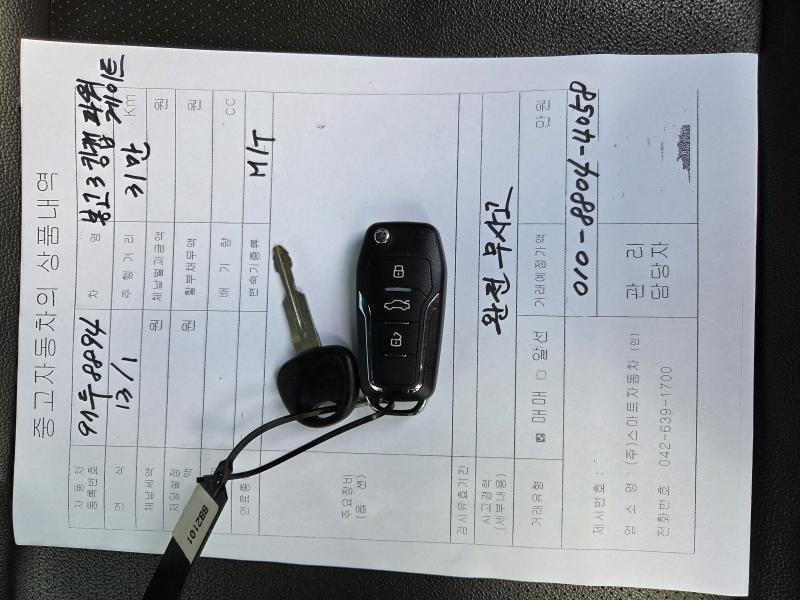 중고자동차의 상품내역
자동차등록번호 91두8894 차명 봉고3 킹캡 파워게이트
연식 13/1 주행거리 31만 Km
체납세액 원 체납벌과금액 원
저당설정 원 할부채무액 원
연료종 배기량 CC
변속기종류 M/T
주요장비
(옵션)
검사유효기간
사고경력
(세부내용) 완전무사고
거래유형 ☑ 매매 □ 알선 거래예정가액 만원
제시번호 : 010-8804-4058
업소명 : (주)스마트자동차 (인)
전화번호 : 042-639-1700
관리
담당자
882101